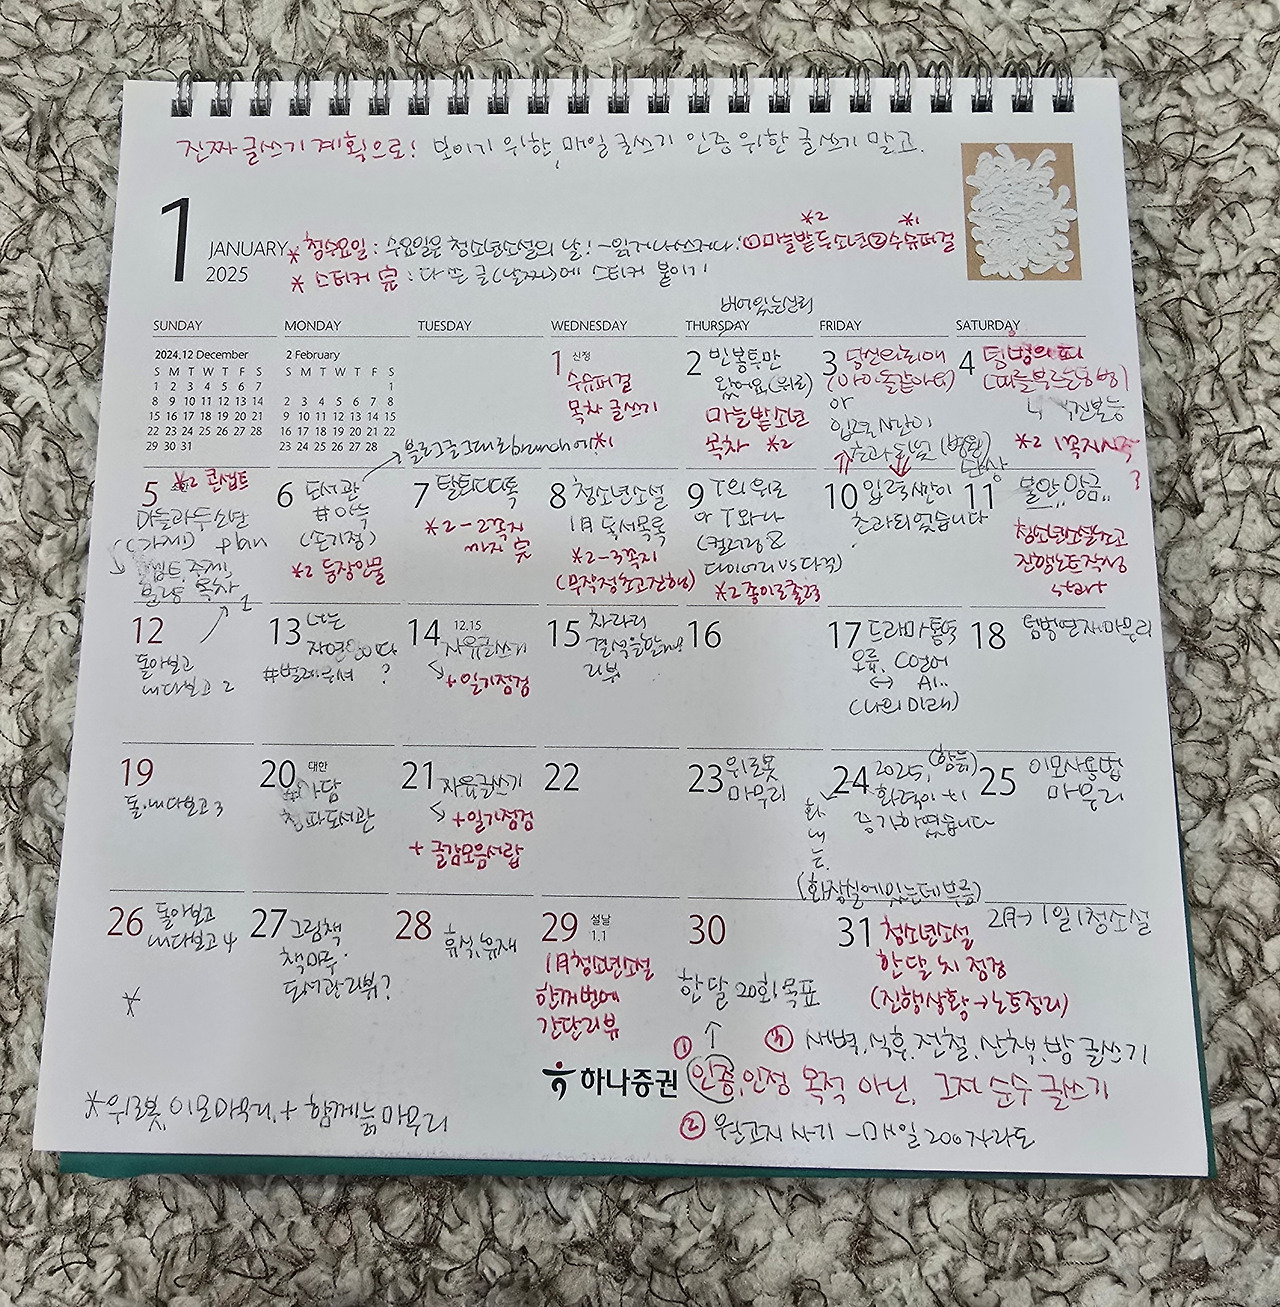 진짜 글쓰기 계획으로! 보이기 위한, 매일 글쓰기 인증 위한 글쓰기 말고.
1
JANUARY
2025
* 청수요일 : 수요일은 청소년소설의 날! - 읽거나 쓰거나. ①마늘밭 소년 ②수슈퍼걸
*2 *1
* 스티커 꾹 : 다 쓴 글(날짜)에 스티커 붙이기
SUNDAY MONDAY TUESDAY WEDNESDAY THURSDAY FRIDAY SATURDAY
2024.12 December
S M T W T F S
1 2 3 4 5 6 7
8 9 10 11 12 13 14
15 16 17 18 19 20 21
22 23 24 25 26 27 28
29 30 31
2 February
S M T W T F S
1
2 3 4 5 6 7 8
9 10 11 12 13 14 15
16 17 18 19 20 21 22
23 24 25 26 27 28
1 신정
수슈퍼걸
목차 글쓰기
2 빈 봉투만
왔어요(위로)
마늘밭소년
목차 *2
3 당신의 최애
(아이돌같아서)
or
입력 시간이
초과 되넬 (병원)
4 텀벙의 피
(피를 부르는 텀벙)
*2 1꼭지 시작
블로그글 그대로 brunch에 *1
5 *2 콘셉트
마늘과 두 소년
(가제) plan
컨셉트, 주제,
분량, 목차
6 도서관
(손기정)
*2 등장인물
7 탈퇴
*2 - 2꼭지
까지
8 청소년소설
1月 독서목록
*2 - 3꼭지
(무작정 초고 전해)
9 T의 위로
or T와 나
(컬러링 &
다이어리 vs 다꾸)
*2 종이로 출력
10 입력 시간이
초과되었습니다
11 불안 앙금..
청소년소설 초고
진행노트작성
start
12
돌아보고
내다보고 2
13 너는
자연
?
14 12.15
자유글쓰기
↳ +일기점검
15 차라리
결석을 할래요
리뷰
16
17 드라마 통역
오류, C언어
↔ AI..
(나의 미래)
18 텀벙 연재 마무리
19
돌.내다보고 3
20 대한
도서관
21 자유글쓰기
↳ +일기점검
+ 글감모음서랍
22
23 위로봇
마무리
24 2025, (함늙)
화력이 +1
증가하였습니다
화
내
는
25 이모사용법
마무리
(화장실에 있는데 부름)
26 돌아보고
내다보고 4
*
27 그림책
책마루
도서관 리뷰?
28
휴식, 휴재
29 설날
1.1
1月 청소년소설
한꺼번에
간단리뷰
30
한 달 20회 목표
↑
31 청소년소설
한 달 치 점검
(진행상황→노트정리)
2月→1일 1청소설
③ 새벽, 식후, 전철, 산책, 밤 글쓰기
하나증권
① 인증, 인정 목적 아닌, 그저 순수 글쓰기
② 원고지 사기 - 매일 200자라도
* 위로봇, 이모 마무리, + 함께늙 마무리